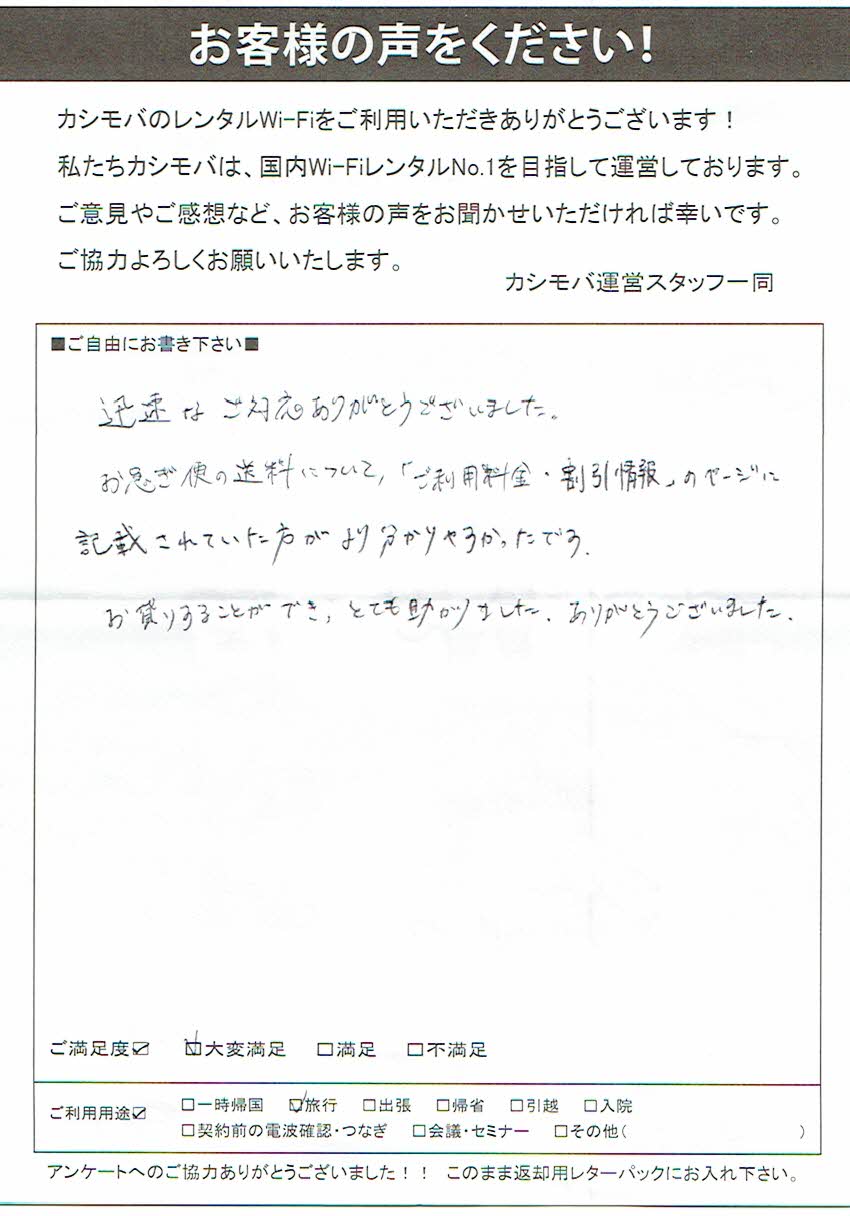 お客様の声をください!
カシモバのレンタルWi-Fiをご利用いただきありがとうございます!
私たちカシモバは、国内Wi-FiレンタルNo.1を目指して運営しております。
ご意見やご感想など、お客様の声をお聞かせいただければ幸いです。
ご協力よろしくお願いいたします。
カシモバ運営スタッフ一同
■ご自由にお書き下さい■
迅速な ご対応ありがとうございました。
お急ぎ便の送料について,「ご利用料金・割引情報」のページに
記載されていた方が より分かりやすかったです.
お貸りすることができ, とても助かりました. ありがとうございました.
ご満足度☑ ☑大変満足 □満足 □不満足
ご利用用途☑ □一時帰国 ☑旅行 □出張 □帰省 □引越 □入院
□契約前の電波確認・つなぎ □会議・セミナー □その他( )
アンケートへのご協力ありがとうございました!! このまま返却用レターパックにお入れ下さい。